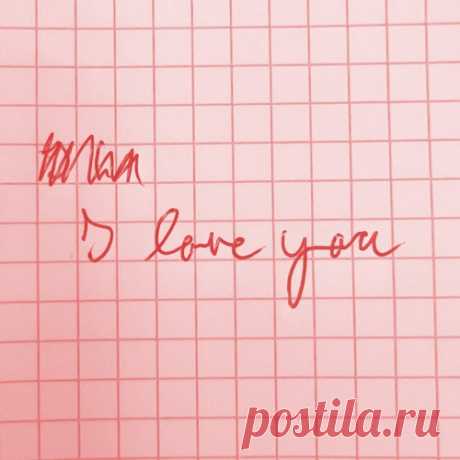 I love you
postila.ru